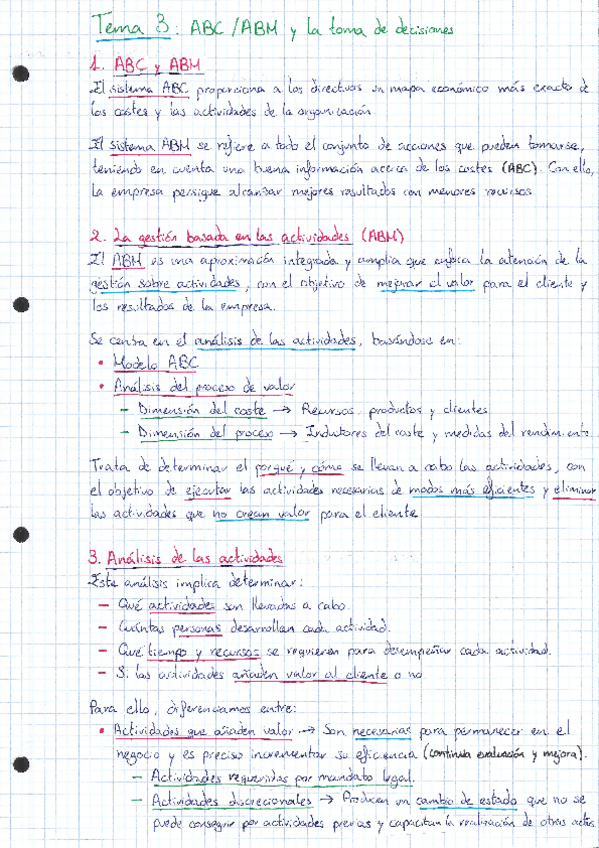 Tema 3: ABC/ABM y la toma de decisiones
1. ABC y ABM
El sistema ABC proporciona a los directivos un mapa económico más exacto de
los costes y las actividades de la organización.
El sistema ABM se refiere a todo el conjunto de acciones que pueden tomarse,
teniendo en cuenta una buena información acerca de los costes (ABC). Con ello,
la empresa persigue alcanzar mejores resultados con menores recursos.
2. La gestión basada en las actividades (ABM)
El ABM es una aproximación integrada y amplia que enfoca la atención de la
gestión sobre actividades, con el objetivo de mejorar el valor para el cliente y
los resultados de la empresa.
Se centra en el análisis de las actividades, basándose en:
• Modelo ABC
• Análisis del proceso de valor
– Dimensión del coste → Recursos, productos y clientes
– Dimensión del proceso → Inductores del coste y medidas del rendimiento
Trata de determinar el porqué y cómo se llevan a cabo las actividades, con
el objetivo de ejecutar las actividades necesarias de modos más eficientes y eliminar
las actividades que no crean valor para el cliente.
3. Análisis de las actividades
Este análisis implica determinar:
– Qué actividades son llevadas a cabo.
– Cuántas personas desarrollan cada actividad.
– Qué tiempo y recursos se requieren para desempeñar cada actividad.
– Si las actividades añaden valor al cliente o no
Para ello, diferenciamos entre:
• Actividades que añaden valor → Son necesarias para permanecer en el
negocio y es preciso incrementar su eficiencia (continua evaluación y mejora).
– Actividades requeridas por mandato legal.
– Actividades discrecionales → Producen un cambio de estado que no se
puede conseguir por actividades previas y capacitan la realización de otras activ.